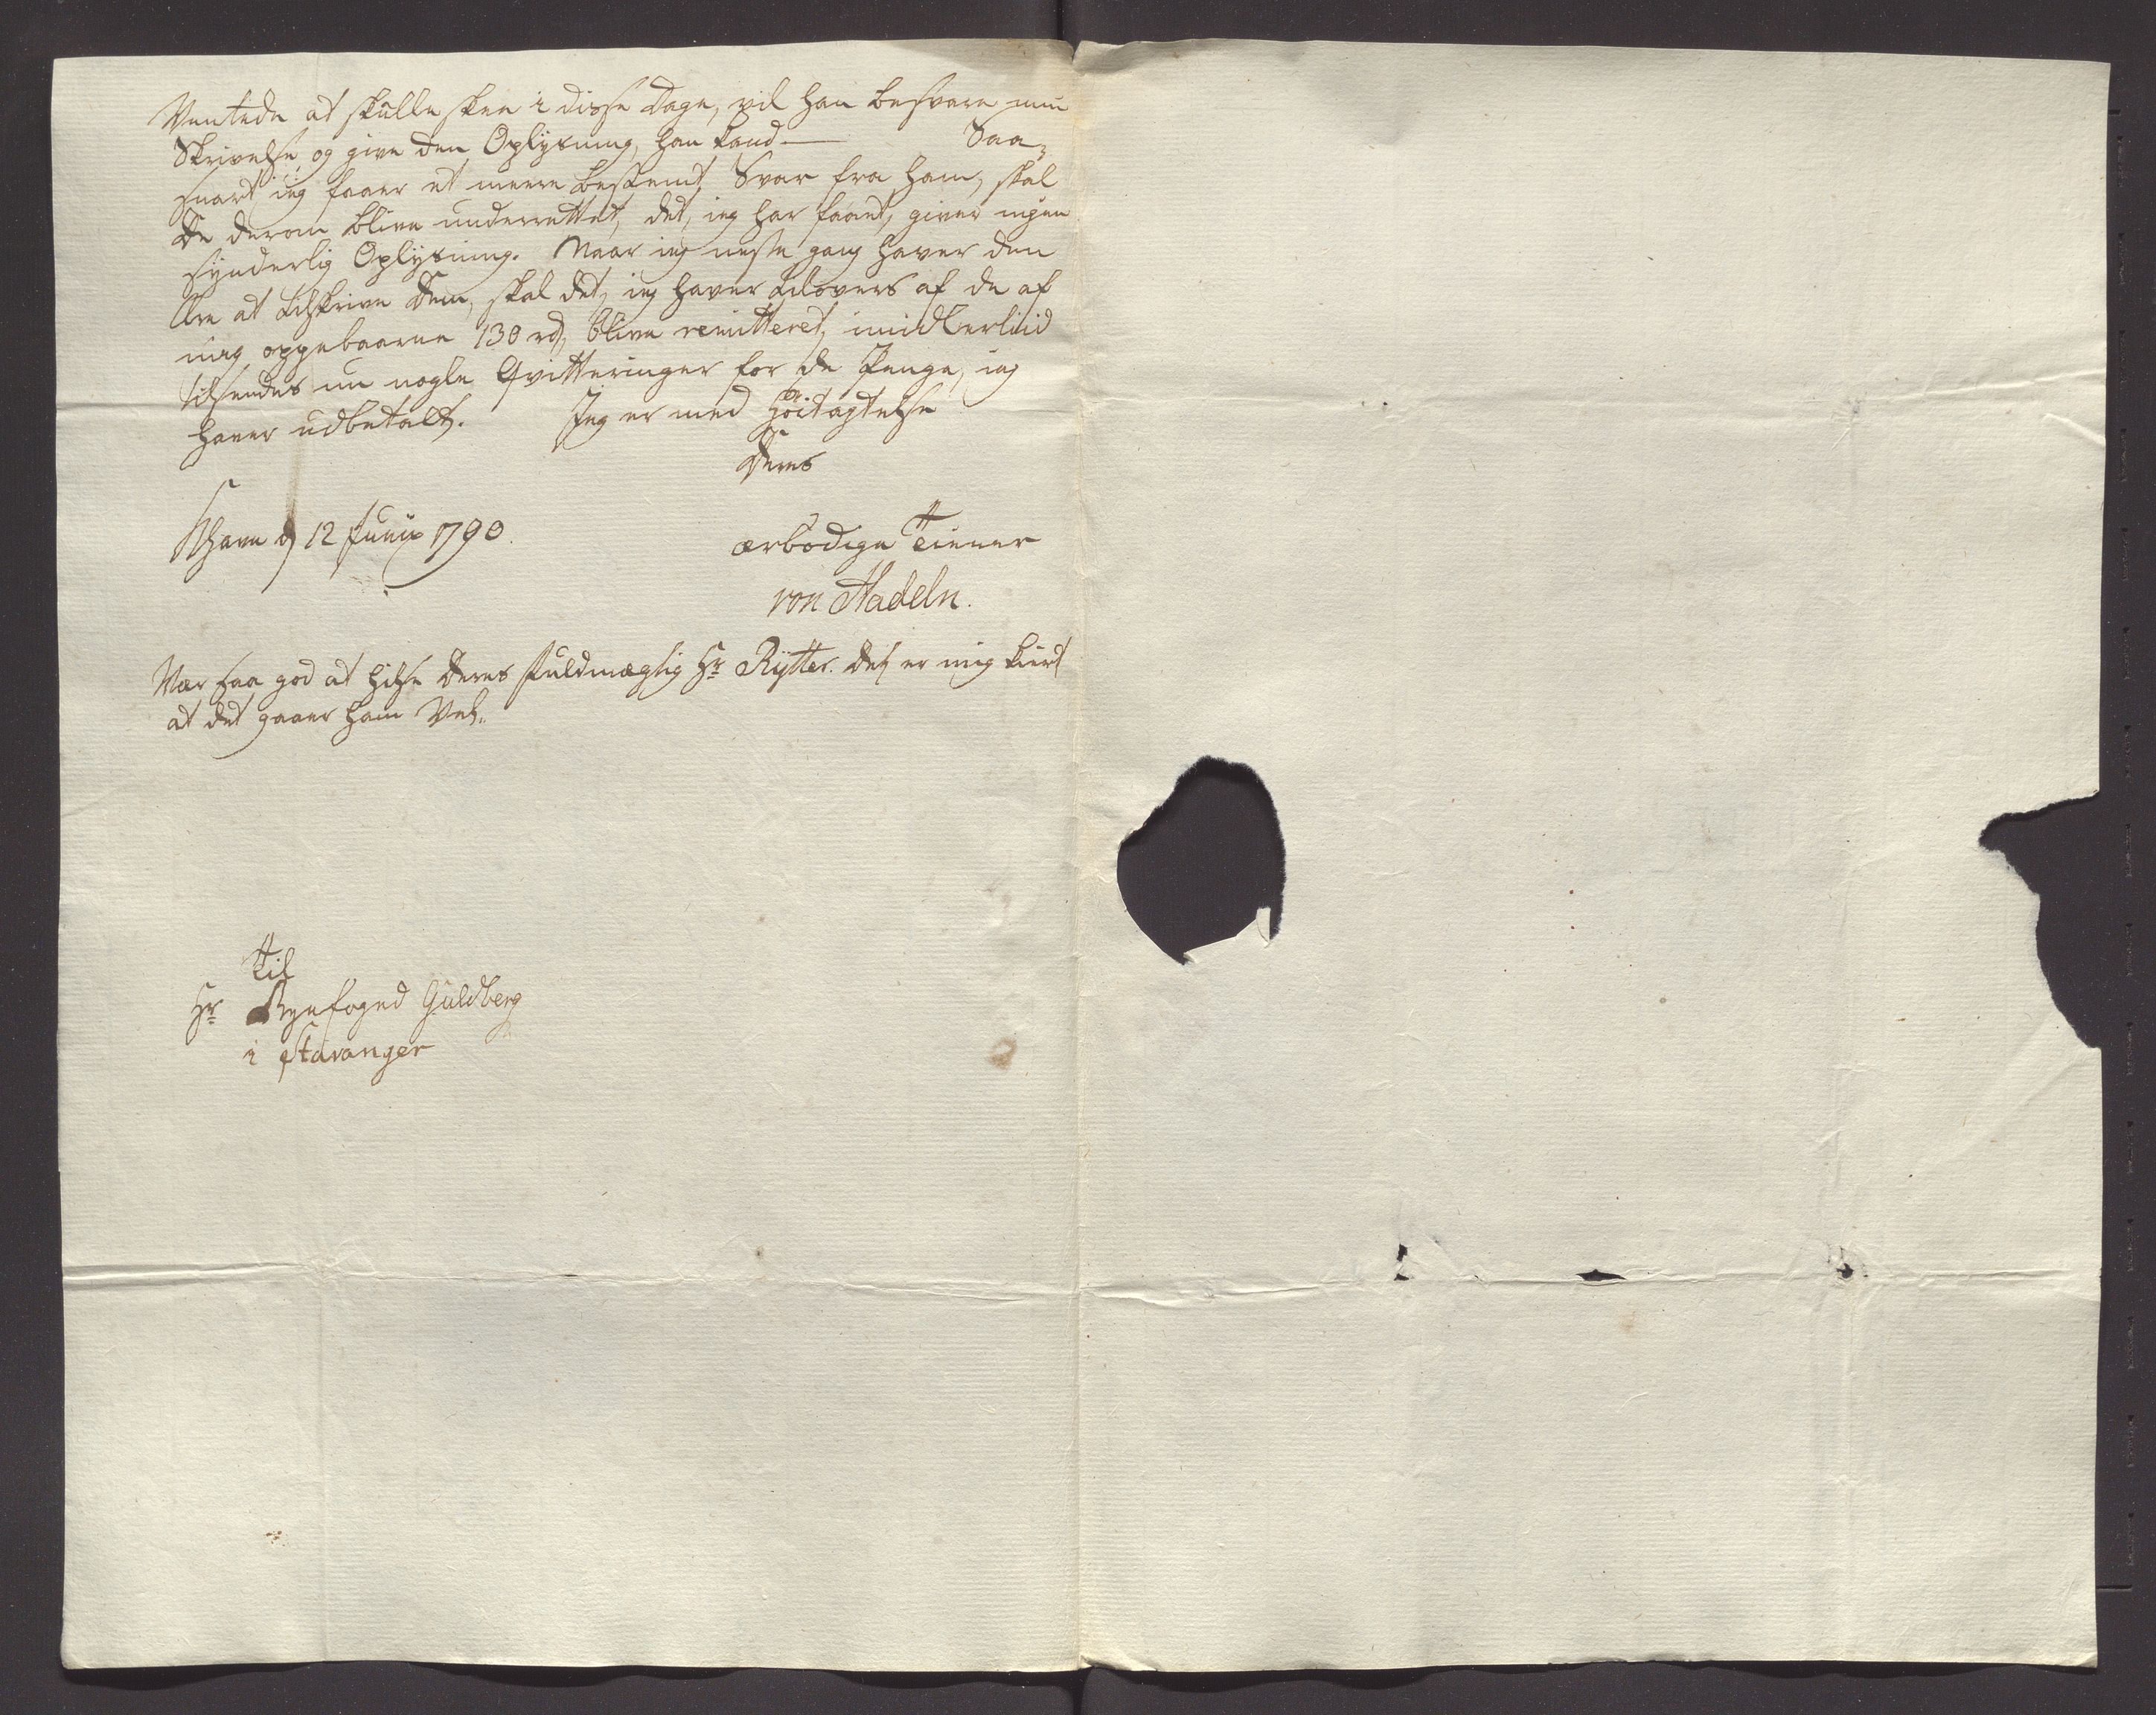 Ventede at skulle skee i disse Dage, vil han besvare min
Skrivelse, og give den Oplysning, han kand— Saa-
snart jeg faaer et meere bestemt Svar fra ham, skal
De derom blive underrettet, det, jeg har faaet, giver ingen
synderlig Oplysning. Naar jeg neste gang haver den
Ære at tilskrive Dem, skal det, jeg haver tilovers af de af
mig oppebaarne 130 rd, blive remitteret, imidlertiid
tilsendes nu nogle Qvitteringer for de Penge, jeg
haver udbetalt. Jeg er med Høitagtelse
Deres
Khavn d 12 Junii 1790.
ærbødige Tiener
von Hadeln.
Vær saa god at hilse Deres Fuldmægtig Hr Rytter. det er mig kiert
at det gaaer ham Vel.
Til
Hr Byefoged Guldberg
i Stavanger